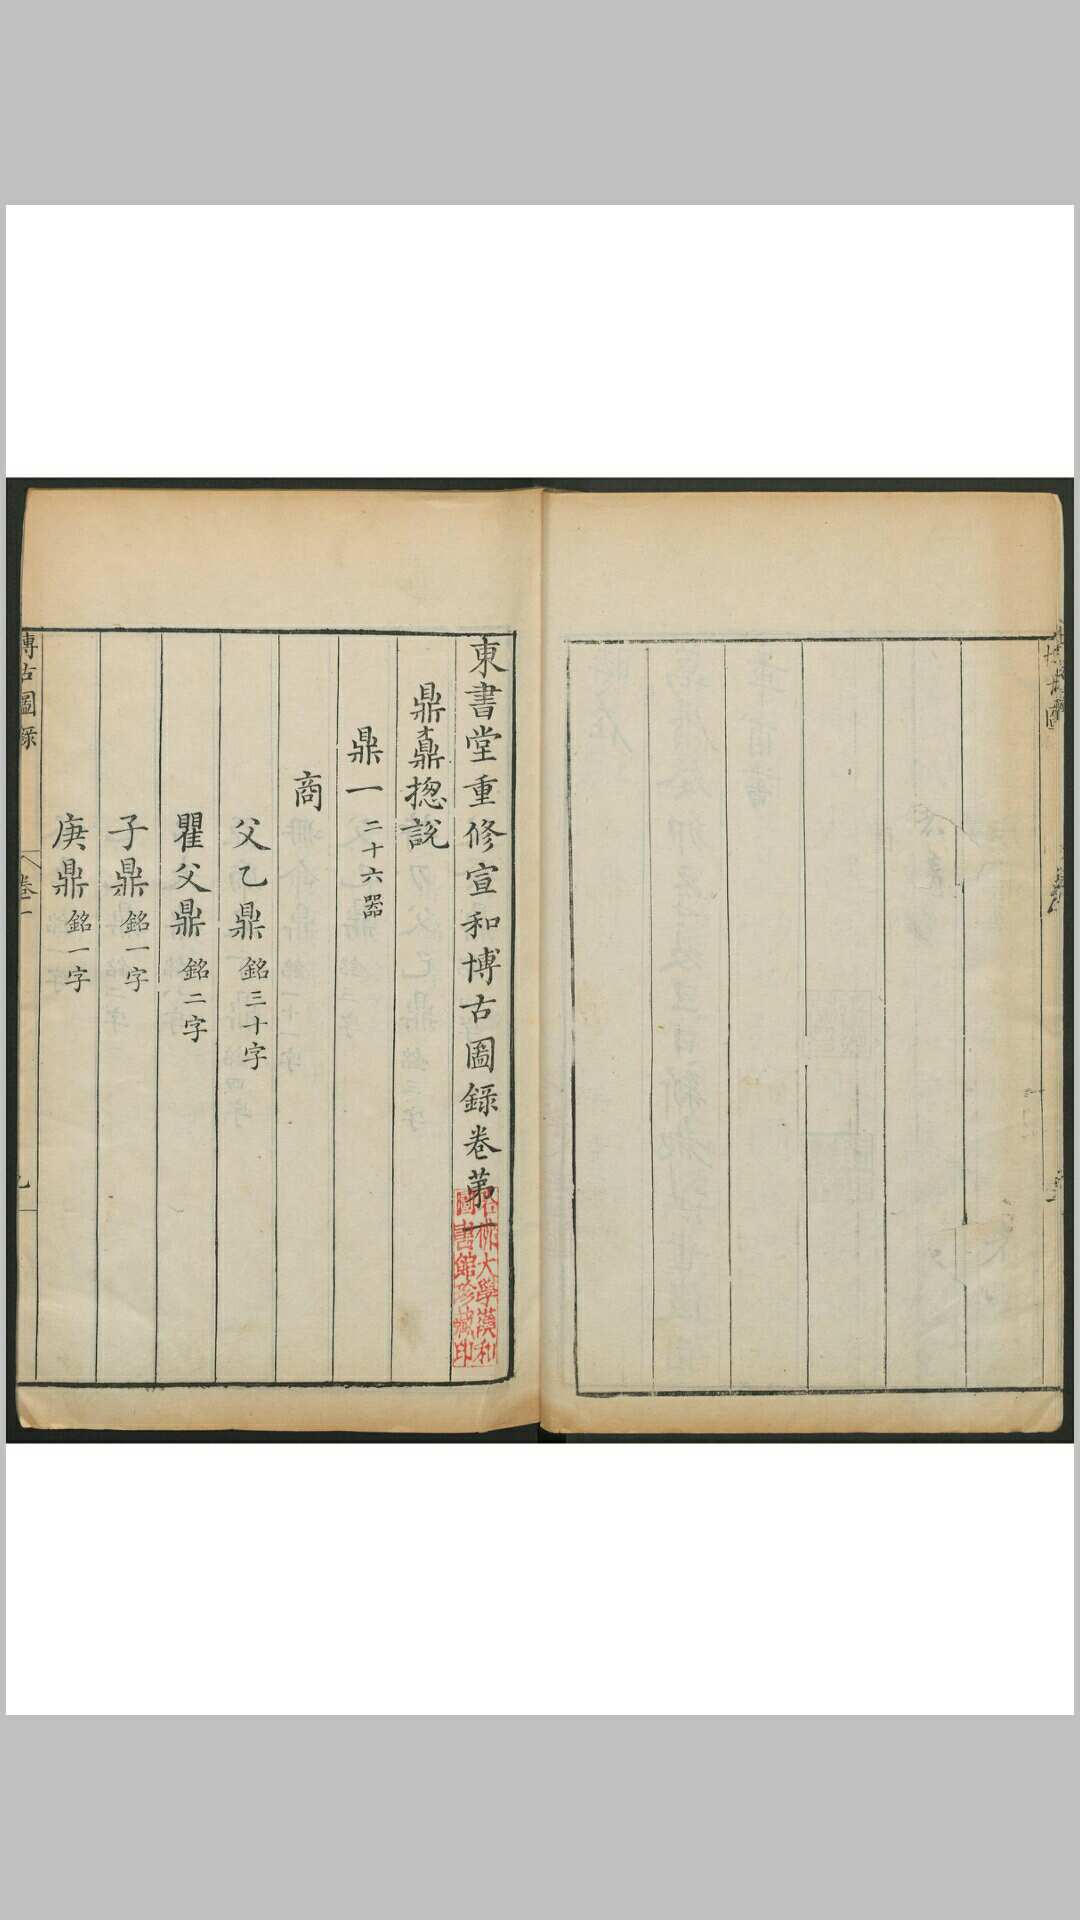 東書堂重修宣和博古圖錄卷第一
鼎鼒揔說
鼎一 二十六器
商
父乙鼎 銘三十字
瞿父鼎 銘二字
子鼎 銘一字
庚鼎 銘一字
博古圖錄 卷一
哈佛大學漢和
圖書館珍藏印